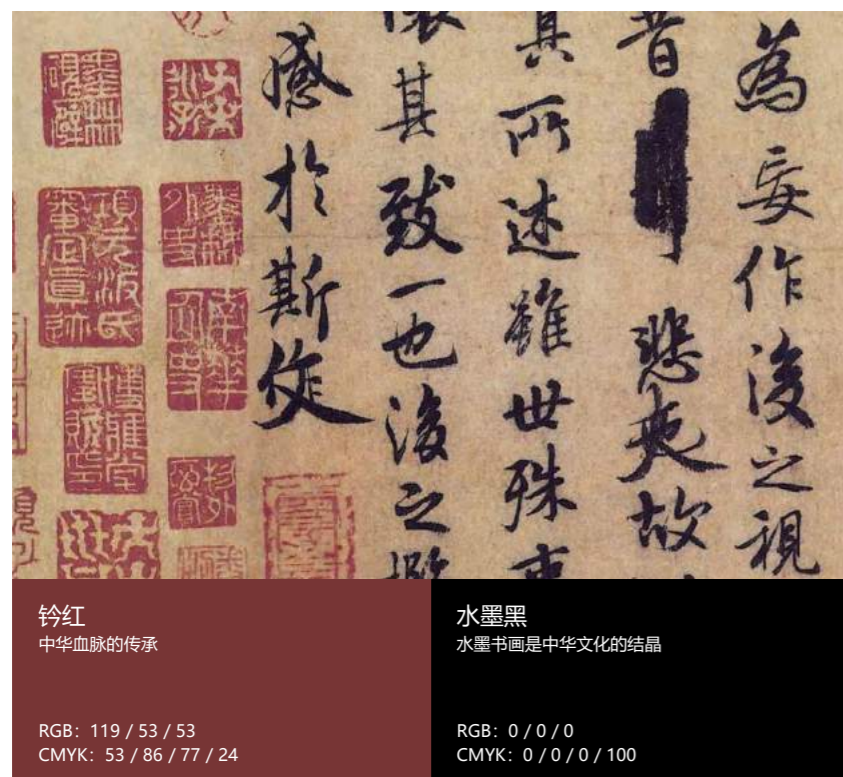 為妄作後之視
昔悲夫故
其所述雖世殊事
懷其致一也後之攬
感於斯文
項元汴氏審定真跡
钤红
中华血脉的传承
RGB：119 / 53 / 53
CMYK：53 / 86 / 77 / 24
水墨黑
水墨书画是中华文化的结晶
RGB：0 / 0 / 0
CMYK：0 / 0 / 0 / 100